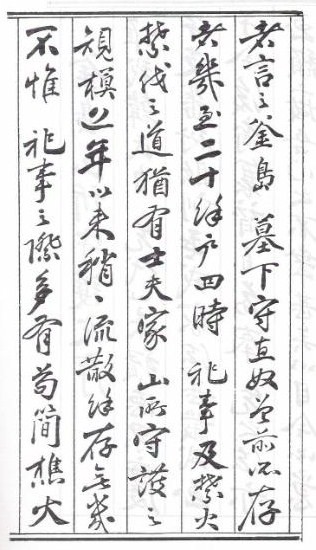 者言之釜島 墓下守直奴曾前所存
者幾至二十餘戶四時 祀事及禁火
禁伐之道猶有士夫家 山所守護之
規模近年以來稍〻流散餘存無幾
不惟 祀事之際多有苟簡樵火